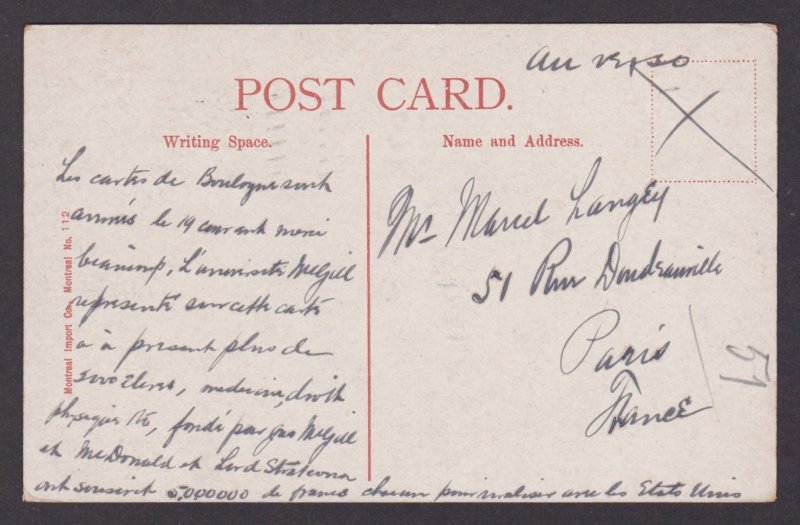 au verso
POST CARD.
Writing Space.
Name and Address.
Les cartes de Boulogne sont
arrivés le 19 courant merci
beaucoup, L'université McGill
représenté sur cette carte
a à présent plus de
élèves, medecine, droit
physique etc, fondé par McGill
et McDonald et Lord Strathcona
ont souscrit 5,000000 de francs chacun pour rivaliser avec les Etats Unis
Montreal Import Co., Montreal No. 112
Mr Marcel Langéy
51 Rue Doudeauville
Paris
France